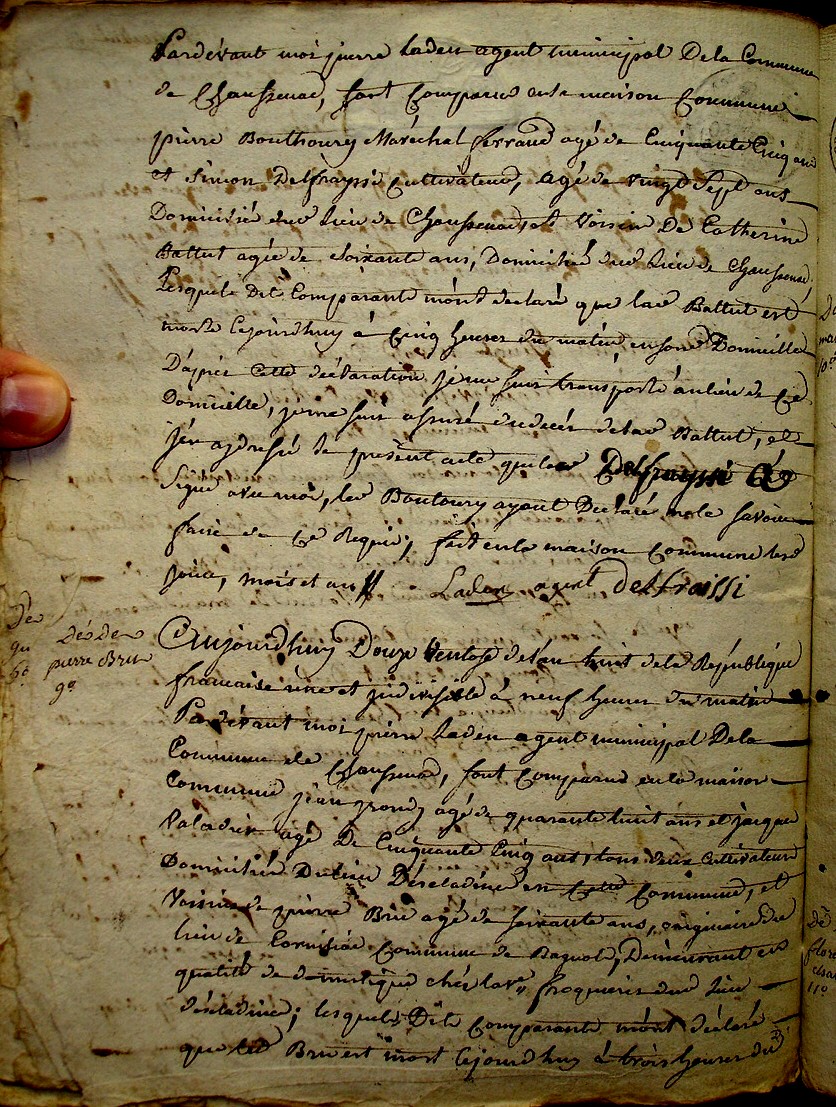 Pardevant moi pierre Laden agent municipal De la Commune
de Chaussenac, sont Comparus en la maison Commune
pierre Bouthoury Maréchal ferrand agé de Cinquante Cinq ans
et Simon Delfrayssi Cultivateur, agé de vingt Sept ans
Domicilié du lieu de Chaussenac et Voisin De Catherine
Battut agée de Soixante ans, Domicilié du lieu de Chaussenac,
Lesquels Dit Comparants m'ont declaré que la Battut est
morte Cejourdhuy à Cinq heures du matin en son Domicille
D'après Cette déclaration je me suis transporté au lieu de Ce
Domicille, je me suis assuré du decès de la Battut, et
j'ai adressé le présent acte que le Delfrayssi a
Signé avec moi, le Boutoury ayant Declaré ne le savoir
faire de Ce Requis, fait en la maison Commune les
jour, mois et an Laden agent delfraissi
Déc de
pierre Bru
9e
Aujourdhuy Douze Ventose de l'an huit de la République
francaise une et jndivisible à neuf heures du matin
Pardevant moi pierre Laden agent municipal De la
Commune de Chaussenac, sont Comparus en la maison
Commune jean agé de quarante huit ans et jacque
Valadier agé De Cinquante Cinq ans, tous deux Cultivateur
Domicilié Du lieu Descladine en Cette Commune, et
Voisin de pierre Bru agé de soixante ans, originaire du
lieu de Commune de Bagnol, Demeurant en
qualité de domestique chés la ve froquerie du lieu
descladine; lesquels Dit Comparants m'ont déclaré
que led Bru est mort Cejourdhuy à trois heures du